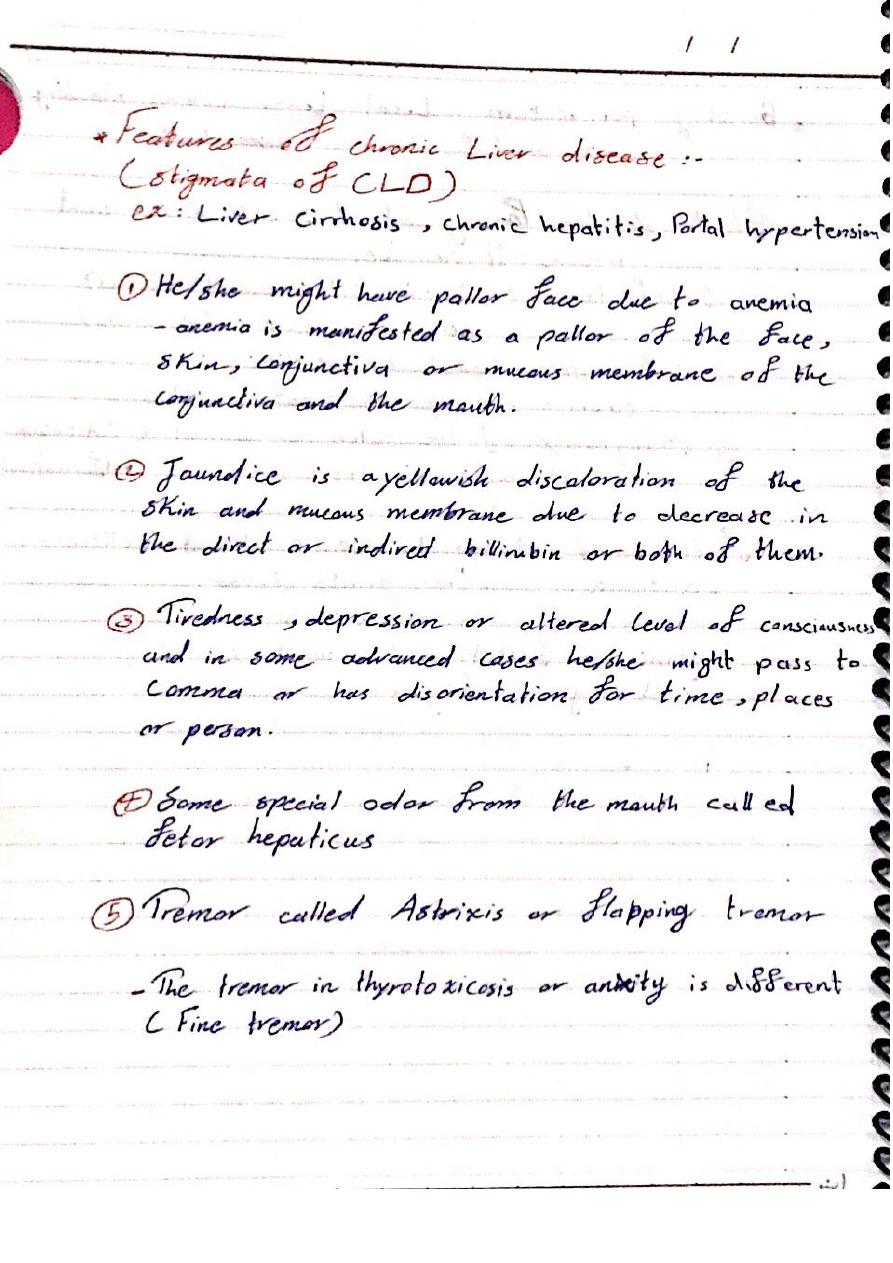 / /
* Features of chronic Liver disease :-
(stigmata of CLD)
ex: Liver cirrhosis , chronic hepatitis, Portal hypertension
① He/she might have pallor face due to anemia
- anemia is manifested as a pallor of the face,
skin, conjunctiva or mucous membrane of the
conjunctiva and the mouth.
② Jaundice is a yellowish discoloration of the
skin and mucous membrane due to decrease in
the direct or indirect billirubin or both of them.
③ Tiredness , depression or altered level of consciousness
and in some advanced cases he/she might pass to
comma or has disorientation for time , places
or person.
④ Some special odor from the mouth called
fetor hepaticus
⑤ Tremor called Astrixis or flapping tremor
- The tremor in thyrotoxicosis or anxity is different
( Fine tremor)